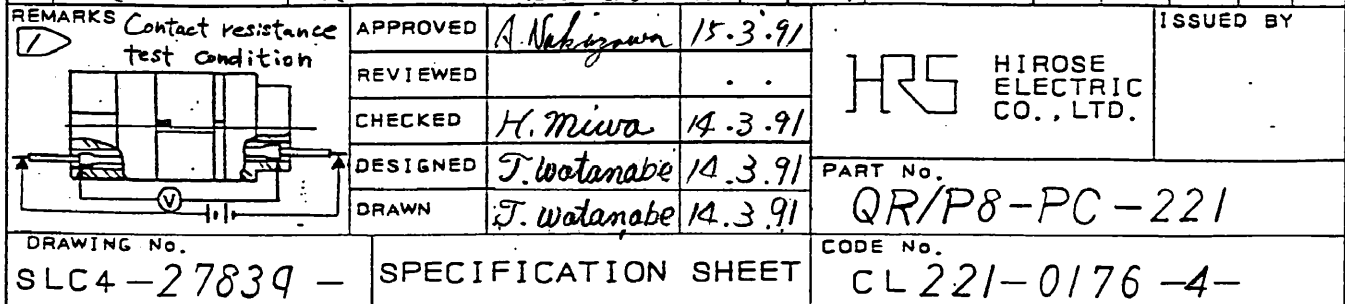 REMARKS
1 Contact resistance
test condition
V
APPROVED A. Nakazawa 15.3.91
REVIEWED . .
CHECKED H. Miwa 14.3.91
DESIGNED T. Watanabe 14.3.91
DRAWN T. Watanabe 14.3.91
HRS HIROSE
ELECTRIC
CO., LTD.
ISSUED BY
PART No.
QR/P8-PC-221
DRAWING No.
SLC4-27839 -
SPECIFICATION SHEET
CODE No.
CL221-0176-4-